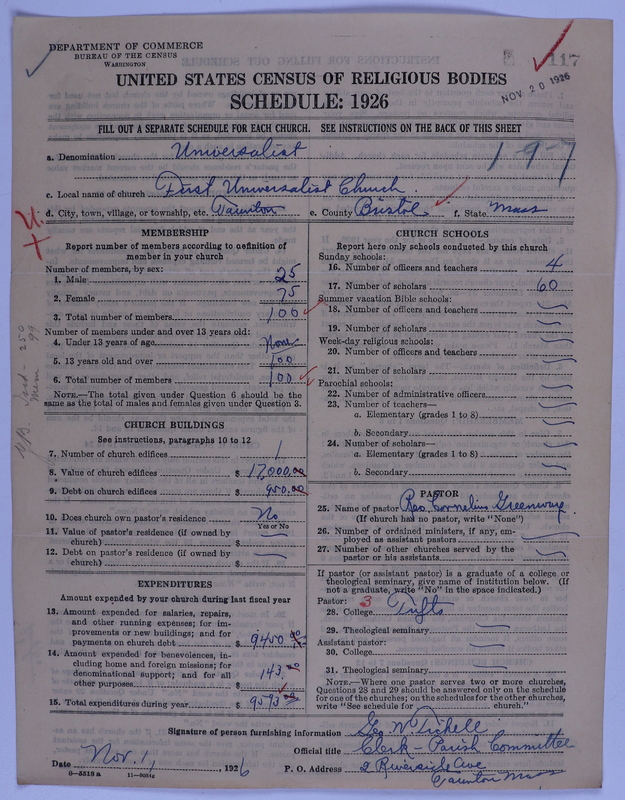 DEPARTMENT OF COMMERCE
BUREAU OF THE CENSUS
WASHINGTON
117
UNITED STATES CENSUS OF RELIGIOUS BODIES
SCHEDULE: 1926
NOV 20 1926
FILL OUT A SEPARATE SCHEDULE FOR EACH CHURCH. SEE INSTRUCTIONS ON THE BACK OF THIS SHEET
a. Denomination Universalist
197
c. Local name of church First Universalist Church.
d. City, town, village, or township, etc. Taunton e. County Bristol f. State Mass
MEMBERSHIP
Report number of members according to definition of
member in your church
Number of members, by sex:
1. Male 25
2. Female 75
3. Total number of members 100
Number of members under and over 13 years old:
4. Under 13 years of age None
5. 13 years old and over 100
6. Total number of members 100
NOTE.—The total given under Question 6 should be the
same as the total of males and females given under Question 3.
CHURCH BUILDINGS
See instructions, paragraphs 10 to 12
7. Number of church edifices 1
8. Value of church edifices $ 17,000.00
9. Debt on church edifices $ 950.00
10. Does church own pastor's residence No
Yes or No
11. Value of pastor's residence (if owned by
church) $
12. Debt on pastor's residence (if owned by
church) $
EXPENDITURES
Amount expended by your church during last fiscal year
13. Amount expended for salaries, repairs,
and other running expenses; for im-
provements or new buildings; and for
payments on church debt $ 9450.00
14. Amount expended for benevolences, in-
cluding home and foreign missions; for
denominational support; and for all
other purposes $ 143.00
15. Total expenditures during year $ 9593
CHURCH SCHOOLS
Report here only schools conducted by this church
Sunday schools:
16. Number of officers and teachers 4
17. Number of scholars 60
Summer vacation Bible schools:
18. Number of officers and teachers
19. Number of scholars
Week-day religious schools:
20. Number of officers and teachers
21. Number of scholars
Parochial schools:
22. Number of administrative officers
23. Number of teachers—
a. Elementary (grades 1 to 8)
b. Secondary
24. Number of scholars—
a. Elementary (grades 1 to 8)
b. Secondary
PASTOR
25. Name of pastor Rev. Cornelius Greenway
(If church has no pastor, write "None")
26. Number of ordained ministers, if any, em-
ployed as assistant pastors
27. Number of other churches served by the
pastor or his assistants
If pastor (or assistant pastor) is a graduate of a college or
theological seminary, give name of institution below. (If
not a graduate, write "No" in the space indicated.)
Pastor: 3
28. College Tufts
29. Theological seminary
Assistant pastor:
30. College
31. Theological seminary
NOTE.—Where one pastor serves two or more churches,
Questions 28 and 29 should be answered only on the schedule
for one of the churches; on the schedules for the other churches,
write "See schedule for church."
Signature of person furnishing information Geo W Tichell
Official title Clerk - Parish Committee
Date Nov. 1, 1926 P. O. Address 2 Riverside Ave
Taunton Mass
8—5518 a 11—9034